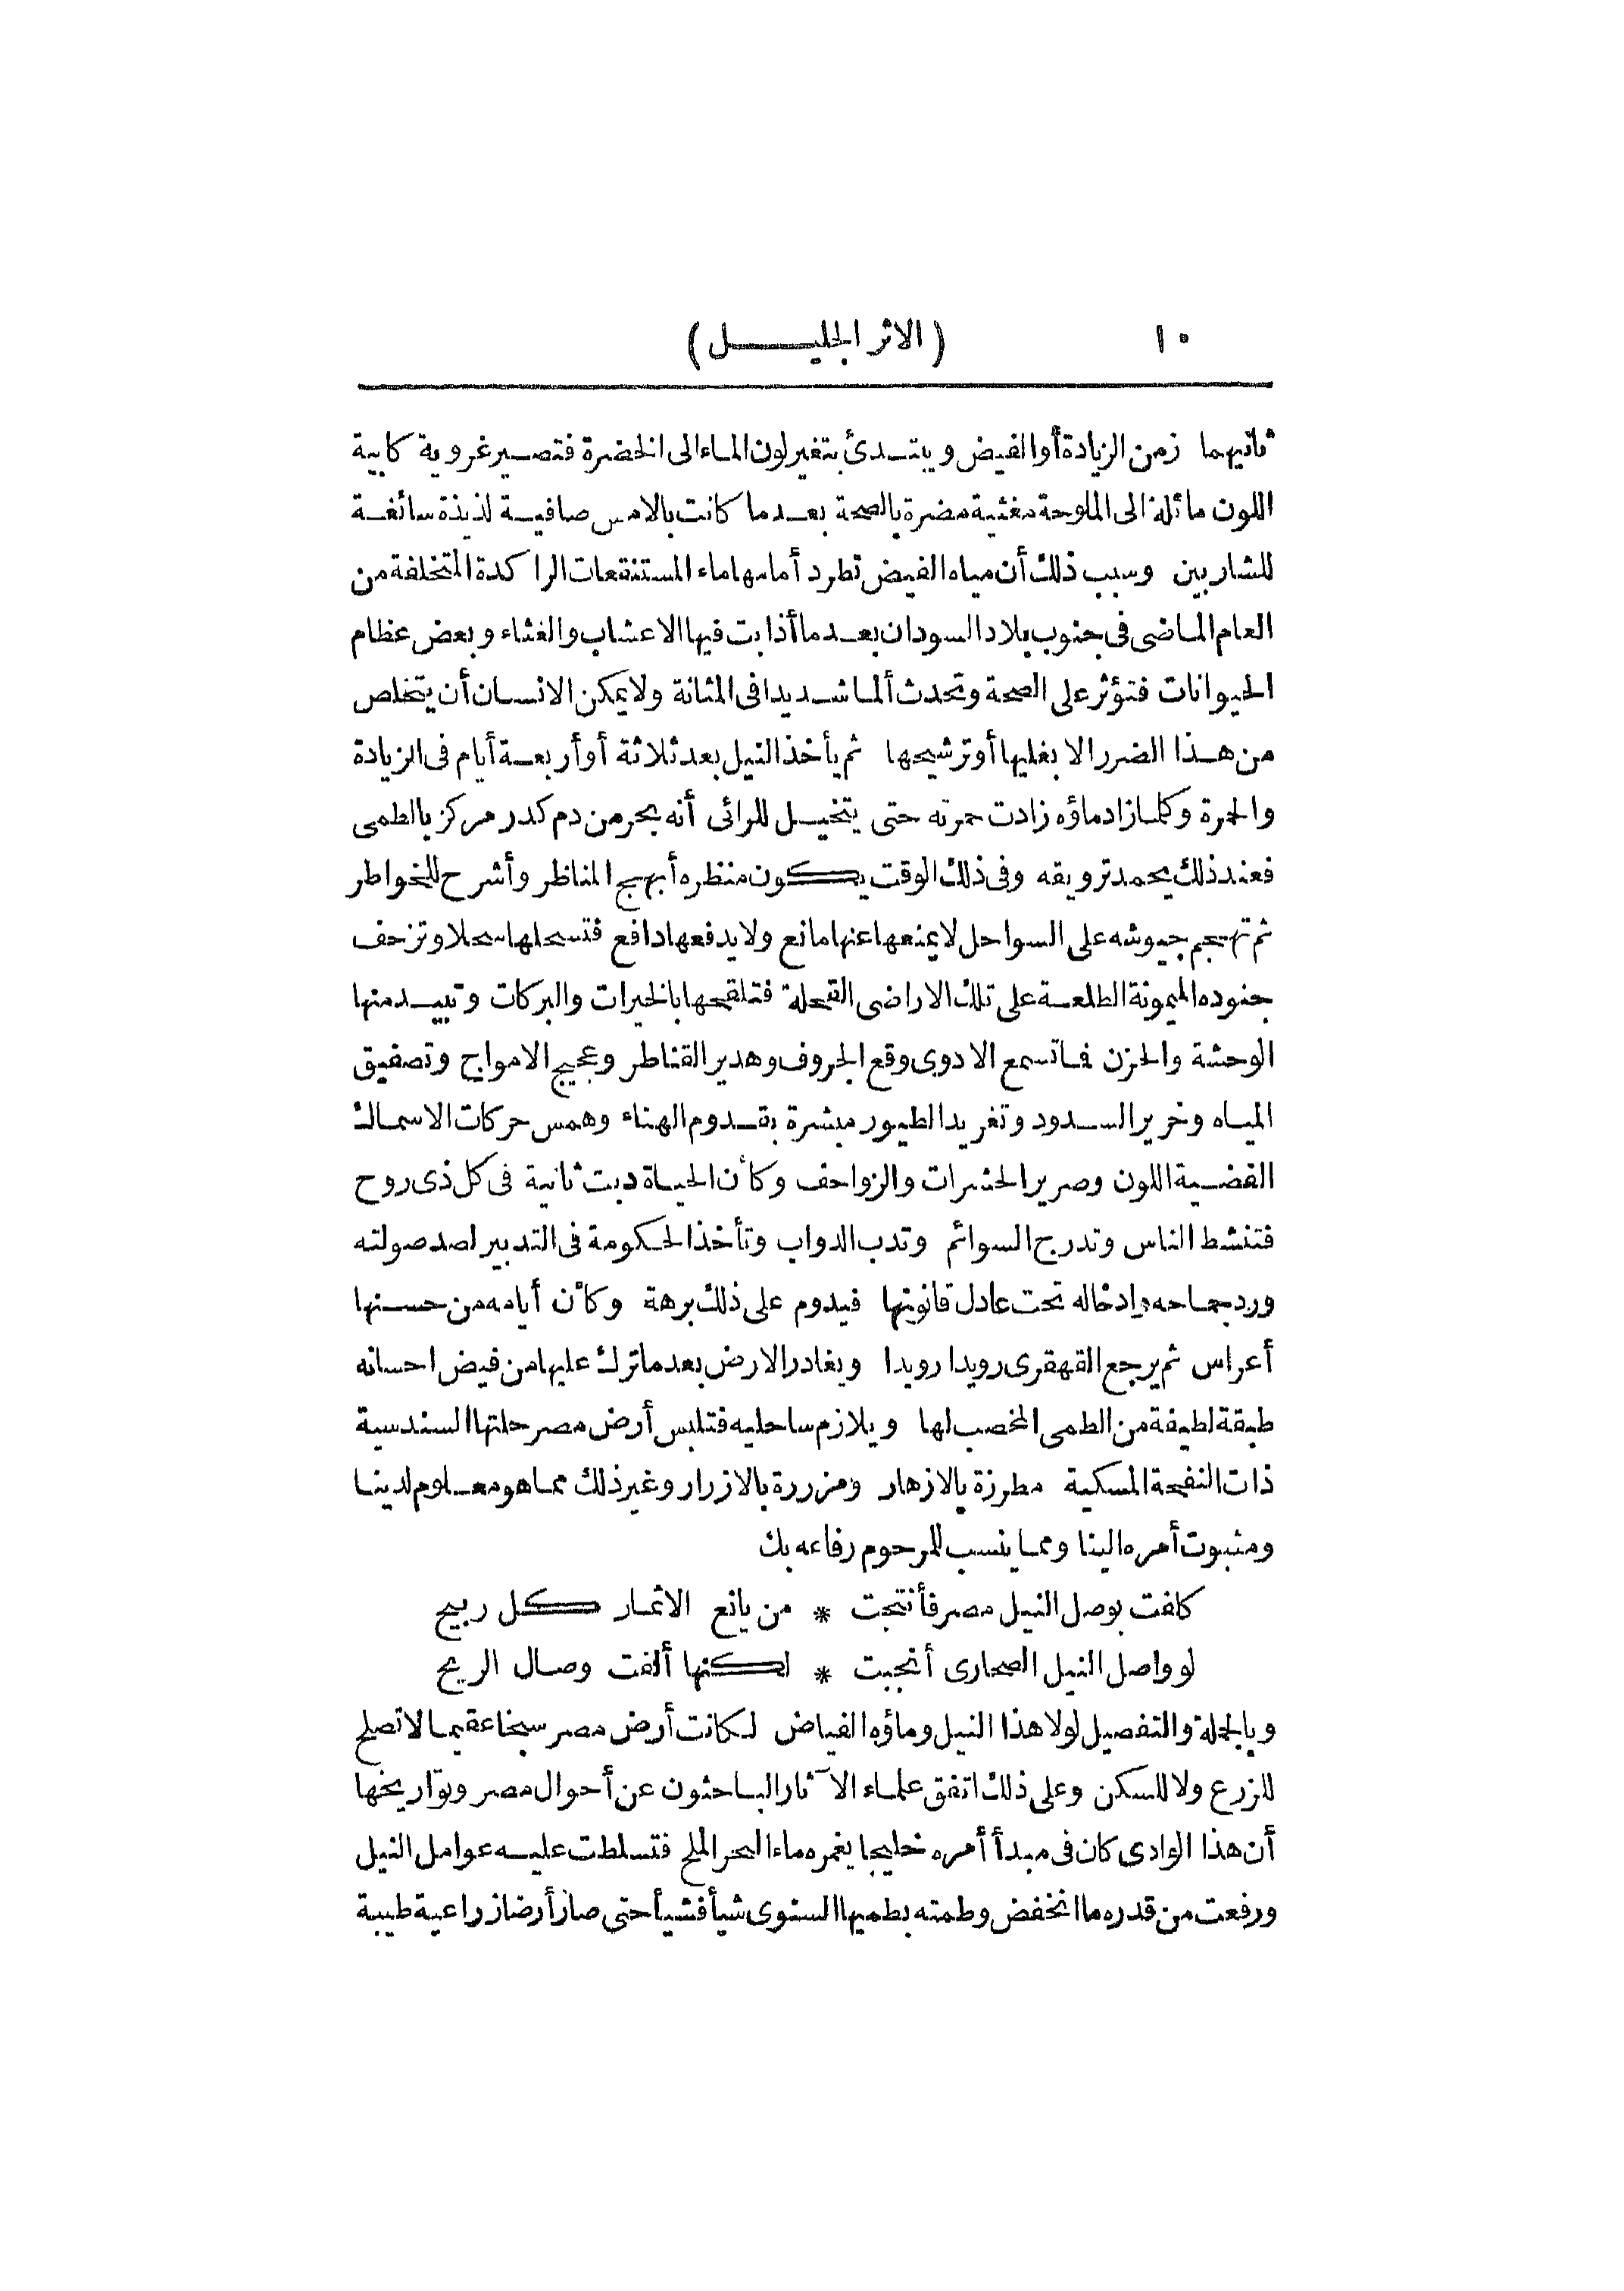 ١٠ (الاثر الجليل)
ثانيهما زمن الزيادة أو الفيض ويبتدئ بتغير لون الماء الى الخضرة فتصير غروية كابية
اللون مائلة الى الملوحة مغثية مضرة بالصحة بعد ما كانت بالامس صافية لذيذة سائغة
للشاربين وسبب ذلك أن مياه الفيض تطرد أمامها ماء المستنقعات الراكدة المتخلفة من
العام الماضى فى جنوب بلاد السودان بعد ما أذابت فيها الاعشاب والغثاء وبعض عظام
الحيوانات فتؤثر على الصحة وتحدث ألما شديدا فى المثانة ولا يمكن الانسان أن يتخلص
من هذا الضرر الا بغليها أو ترشيحها ثم يأخذ النيل بعد ثلاثة أو أربعة أيام فى الزيادة
والحمرة وكلما زاد ماؤه زادت حمرته حتى يتخيل للرائى أنه بحر من دم كدر مركز بالطمى
فعند ذلك يحمد ترويقه وفى ذلك الوقت يكون منظره أبهج المناظر وأشرح للخواطر
ثم تهجم جيوشه على السواحل لا يمنعها عنها مانع ولا يدفعها دافع فتسحلها سحلا وتزحف
جنوده الميمونة الطلعة على تلك الاراضى القحلة فتلقحها بالخيرات والبركات وتبيد منها
الوحشة والحزن فما تسمع الا دوى وقع الجروف وهدير القناطر وعجيج الامواج وتصفيق
المياه وخرير السدود وتغريد الطيور مبشرة بقدوم الهناء وهمس حركات الاسماك
الفضية اللون وصرير الحشرات والزواحف وكأن الحياة دبت ثانية فى كل ذى روح
فتنشط الناس وتدرج السوائم وتدب الدواب وتأخذ الحكومة فى التدبير لصد صولته
ورد جماحه وادخاله تحت عادل قانونها فيدوم على ذلك برهة وكأن أيامه من حسنها
أعراس ثم يرجع القهقرى رويدا رويدا ويغادر الارض بعد ما ترك عليها من فيض احسانه
طبقة لطيفة من الطمى المخصب لها ويلازم ساحليه فتلبس أرض مصر حلتها السندسية
ذات النفحة المسكية مطرزة بالازهار ومزررة بالازرار وغير ذلك مما هو معلوم لدينا
ومثبوت أمره الينا ومما ينسب للمرحوم رفاعه بك
كلفت بوصل النيل مصر فأنتجت * من يانع الاثمار كل ربيح
لو واصل النيل الصحارى أنجبت * لكنها ألفت وصال الريح
وبالجملة والتفصيل لولا هذا النيل وماؤه الفياض لكانت أرض مصر سبخا عقيما لا تصلح
للزرع ولا للسكن وعلى ذلك اتفق علماء الآثار الباحثون عن أحوال مصر وتواريخها
أن هذا الوادى كان فى مبدأ أمره خليجا يغمره ماء البحر الملح فتسلطت عليه عوامل النيل
ورفعت من قدره ما انخفض وطمته بطميها السنوى شيأ فشيأ حتى صار أرضا زراعية طيبة